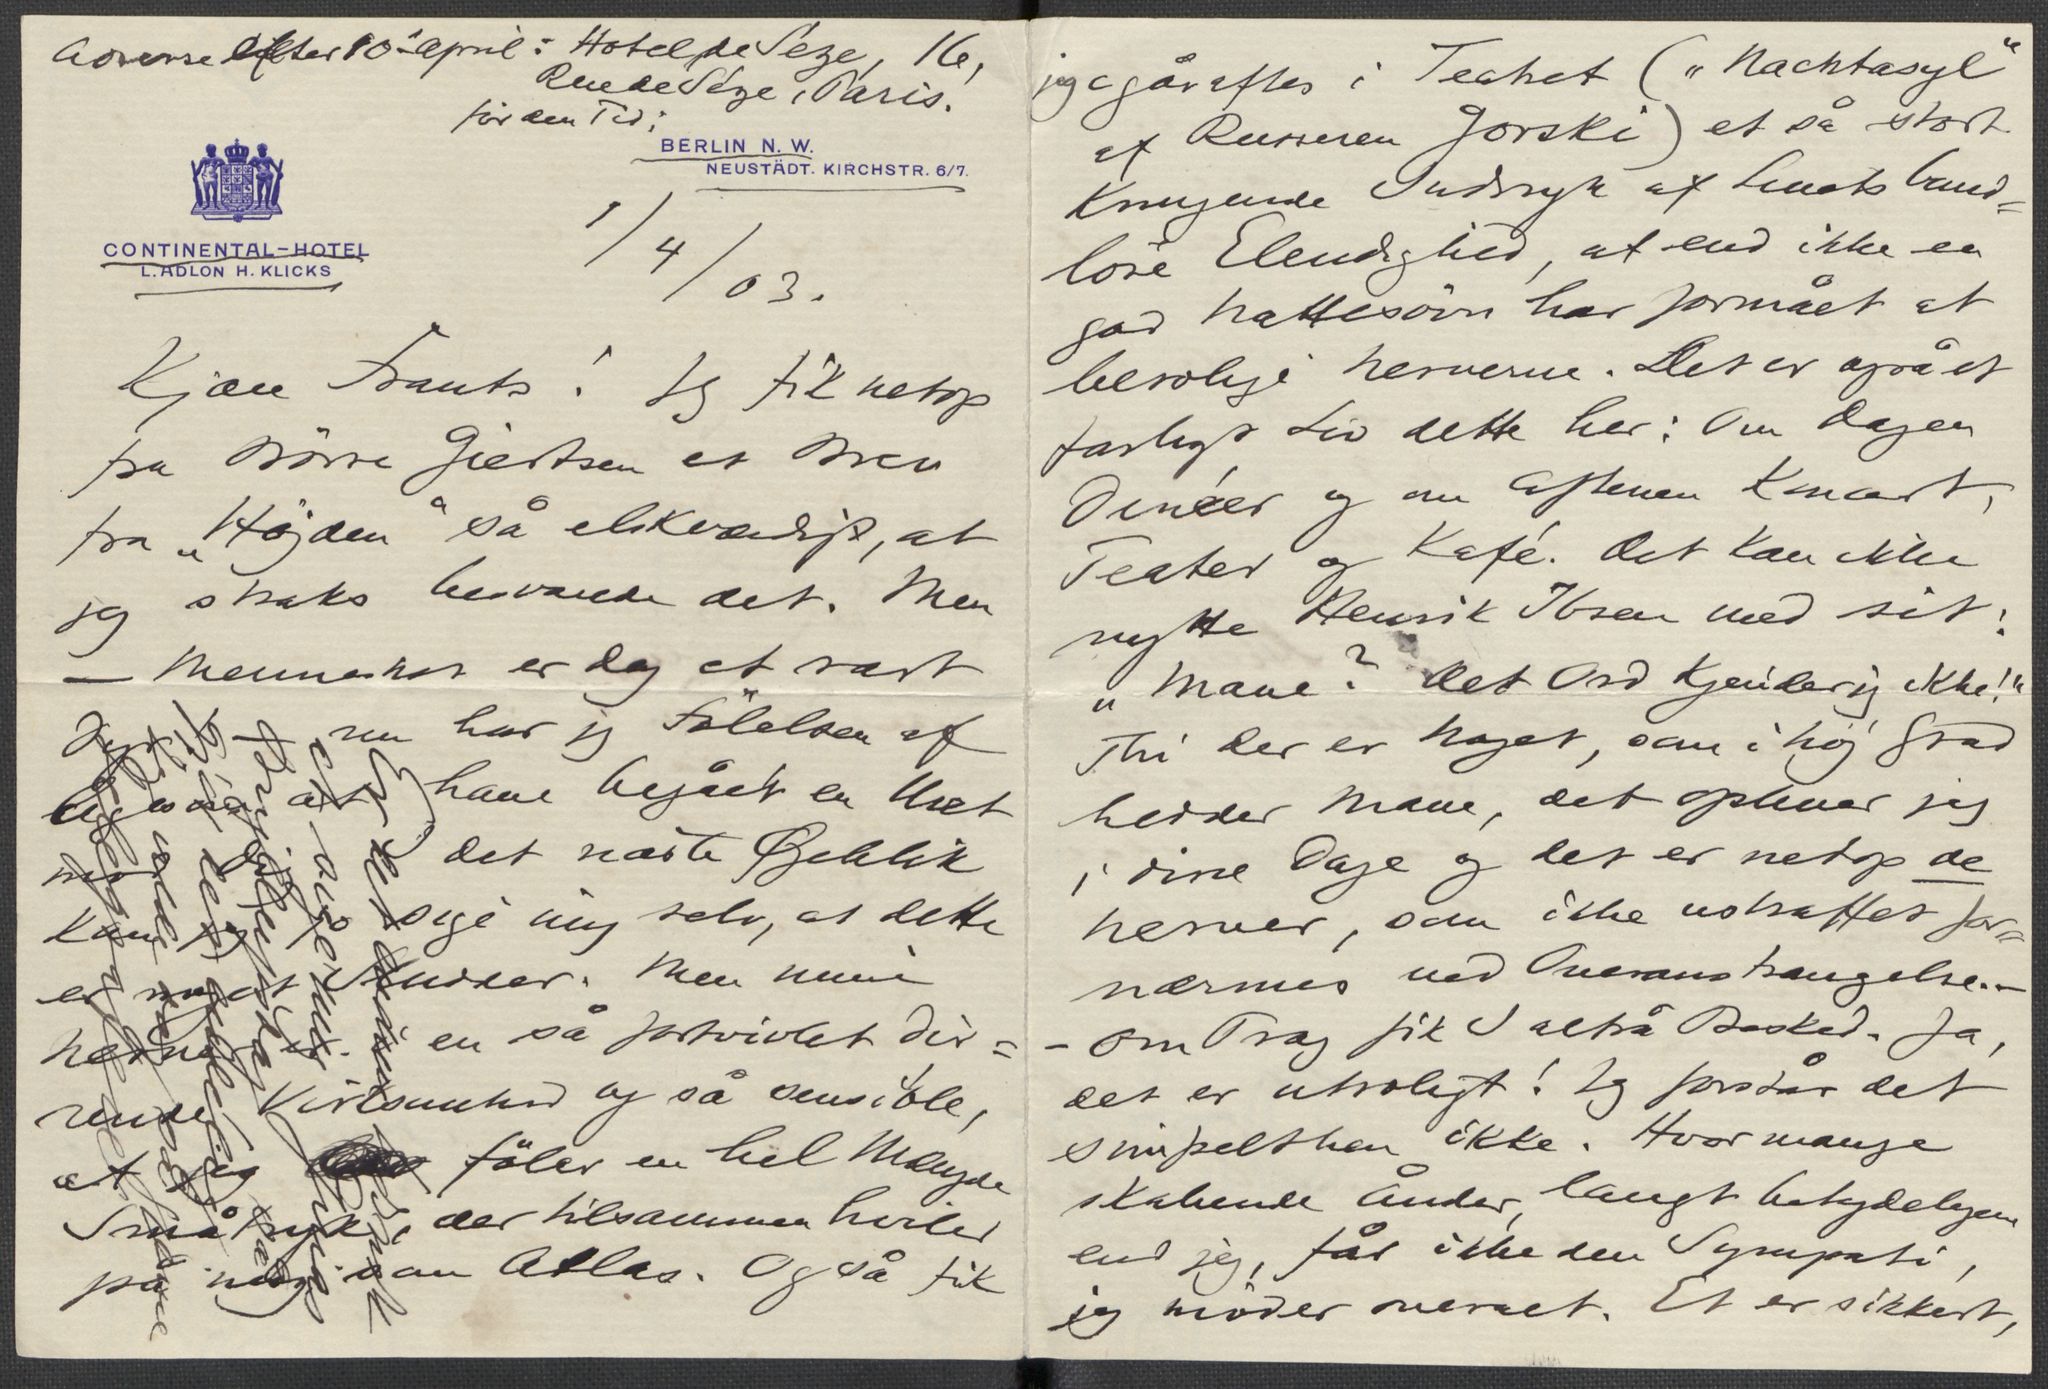 Adresse efter 10de April: Hotel de Sèze, 16,
Rue de Sèze, Paris.
for den Tid:
BERLIN N. W.
NEUSTÄDT. KIRCHSTR. 6/7.
CONTINENTAL-HOTEL
L. ADLON H. KLICKS
1/4/03.
Kjære Frants! Jeg fik netop
fra Börre Giertsen et Brev
fra "Höjden" så elskværdigt, at
jeg straks besvarede det. Men
– Mennesket er dog et rart
Dyr – nu har jeg Fölelsen af
ligesom at have begået en Uret
mod Dig. I det næste Øjeblik
kan jeg sige mig selv, at dette
er noget Sludder. Men mine
Nerver er i en så fortvivlet dir=
rende Virksomhed og så sensible,
at jeg föler en hel Mængde
Småtryk, der tilsammen hviler
på mig som Atlas. Og så fik
jeg igåraftes i Teatret ("Nachtasyl"
af Russeren Gorski) et så stort
knugende Indtryk af Livets bund=
löse Elendighed, at end ikke en
god Nattesövn har formået at
berolige Nerverne. Det er også et
farligt Liv dette her: Om Dagen
Dinéer og om Aftenen Koncert,
Teater og Kafé. Det kan ikke
nytte Henrik Ibsen med sit:
"Mave? Det Ord kjender jeg ikke!"
Thi der er Noget, som i höj Grad
hedder Mave, det oplever jeg
i disse Dage og det er netop de
Nerver, som ikke ustraffet for=
nærmes ved Overanstrængelse. –
– Om Prag fik I altså Besked. Ja,
det er utroligt! Jeg forstår det
simpelthen ikke. Hvor mange
skabende Ånder, langt betydeligere
end jeg, får ikke den Sympati,
jeg möder overalt. Et er sikkert,